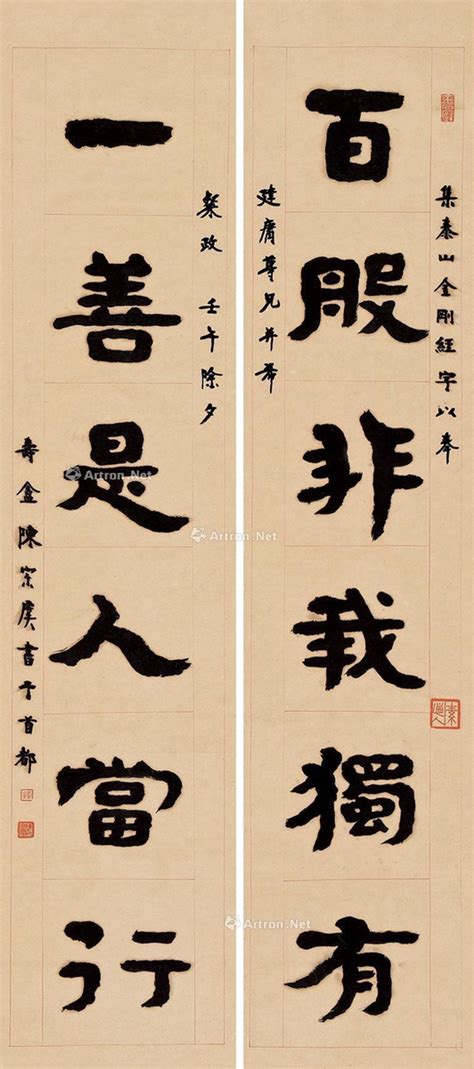 集泰山金剛經字以奉
百般非我獨有
建庸尊兄并希
粲政 壬午除夕
一善是人當行
壽盦陳宗虞書于首都
Artron.Net
Artron.Net
Artron.Net
Artron.Net